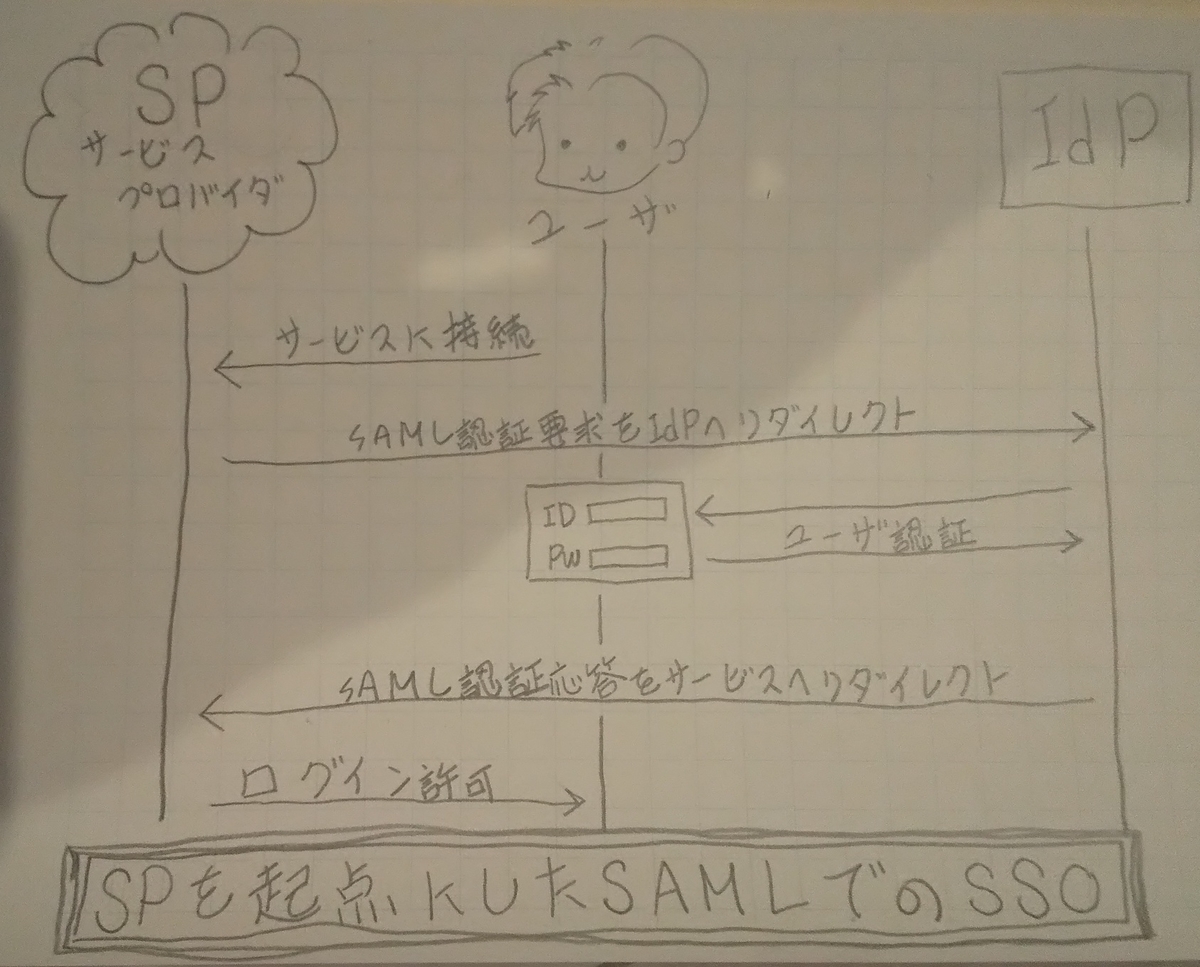 SP
サービス
プロバイダ
ユーザ
IdP
サービスに接続
SAML認証要求をIdPへリダイレクト
ID
PW
ユーザ認証
SAML認証応答をサービスへリダイレクト
ログイン許可
SPを起点にしたSAMLでのSSO